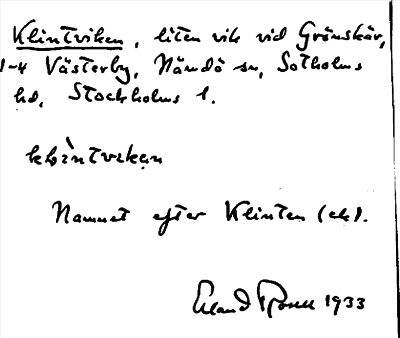 Klintviken, liten vik vid Grönskär,
1-4 Västerby, Nämdö sn, Sotholms
hd, Stockholms l.
klìntvikən
Namnet efter Klinten (ek).
Erland Rosell 1933